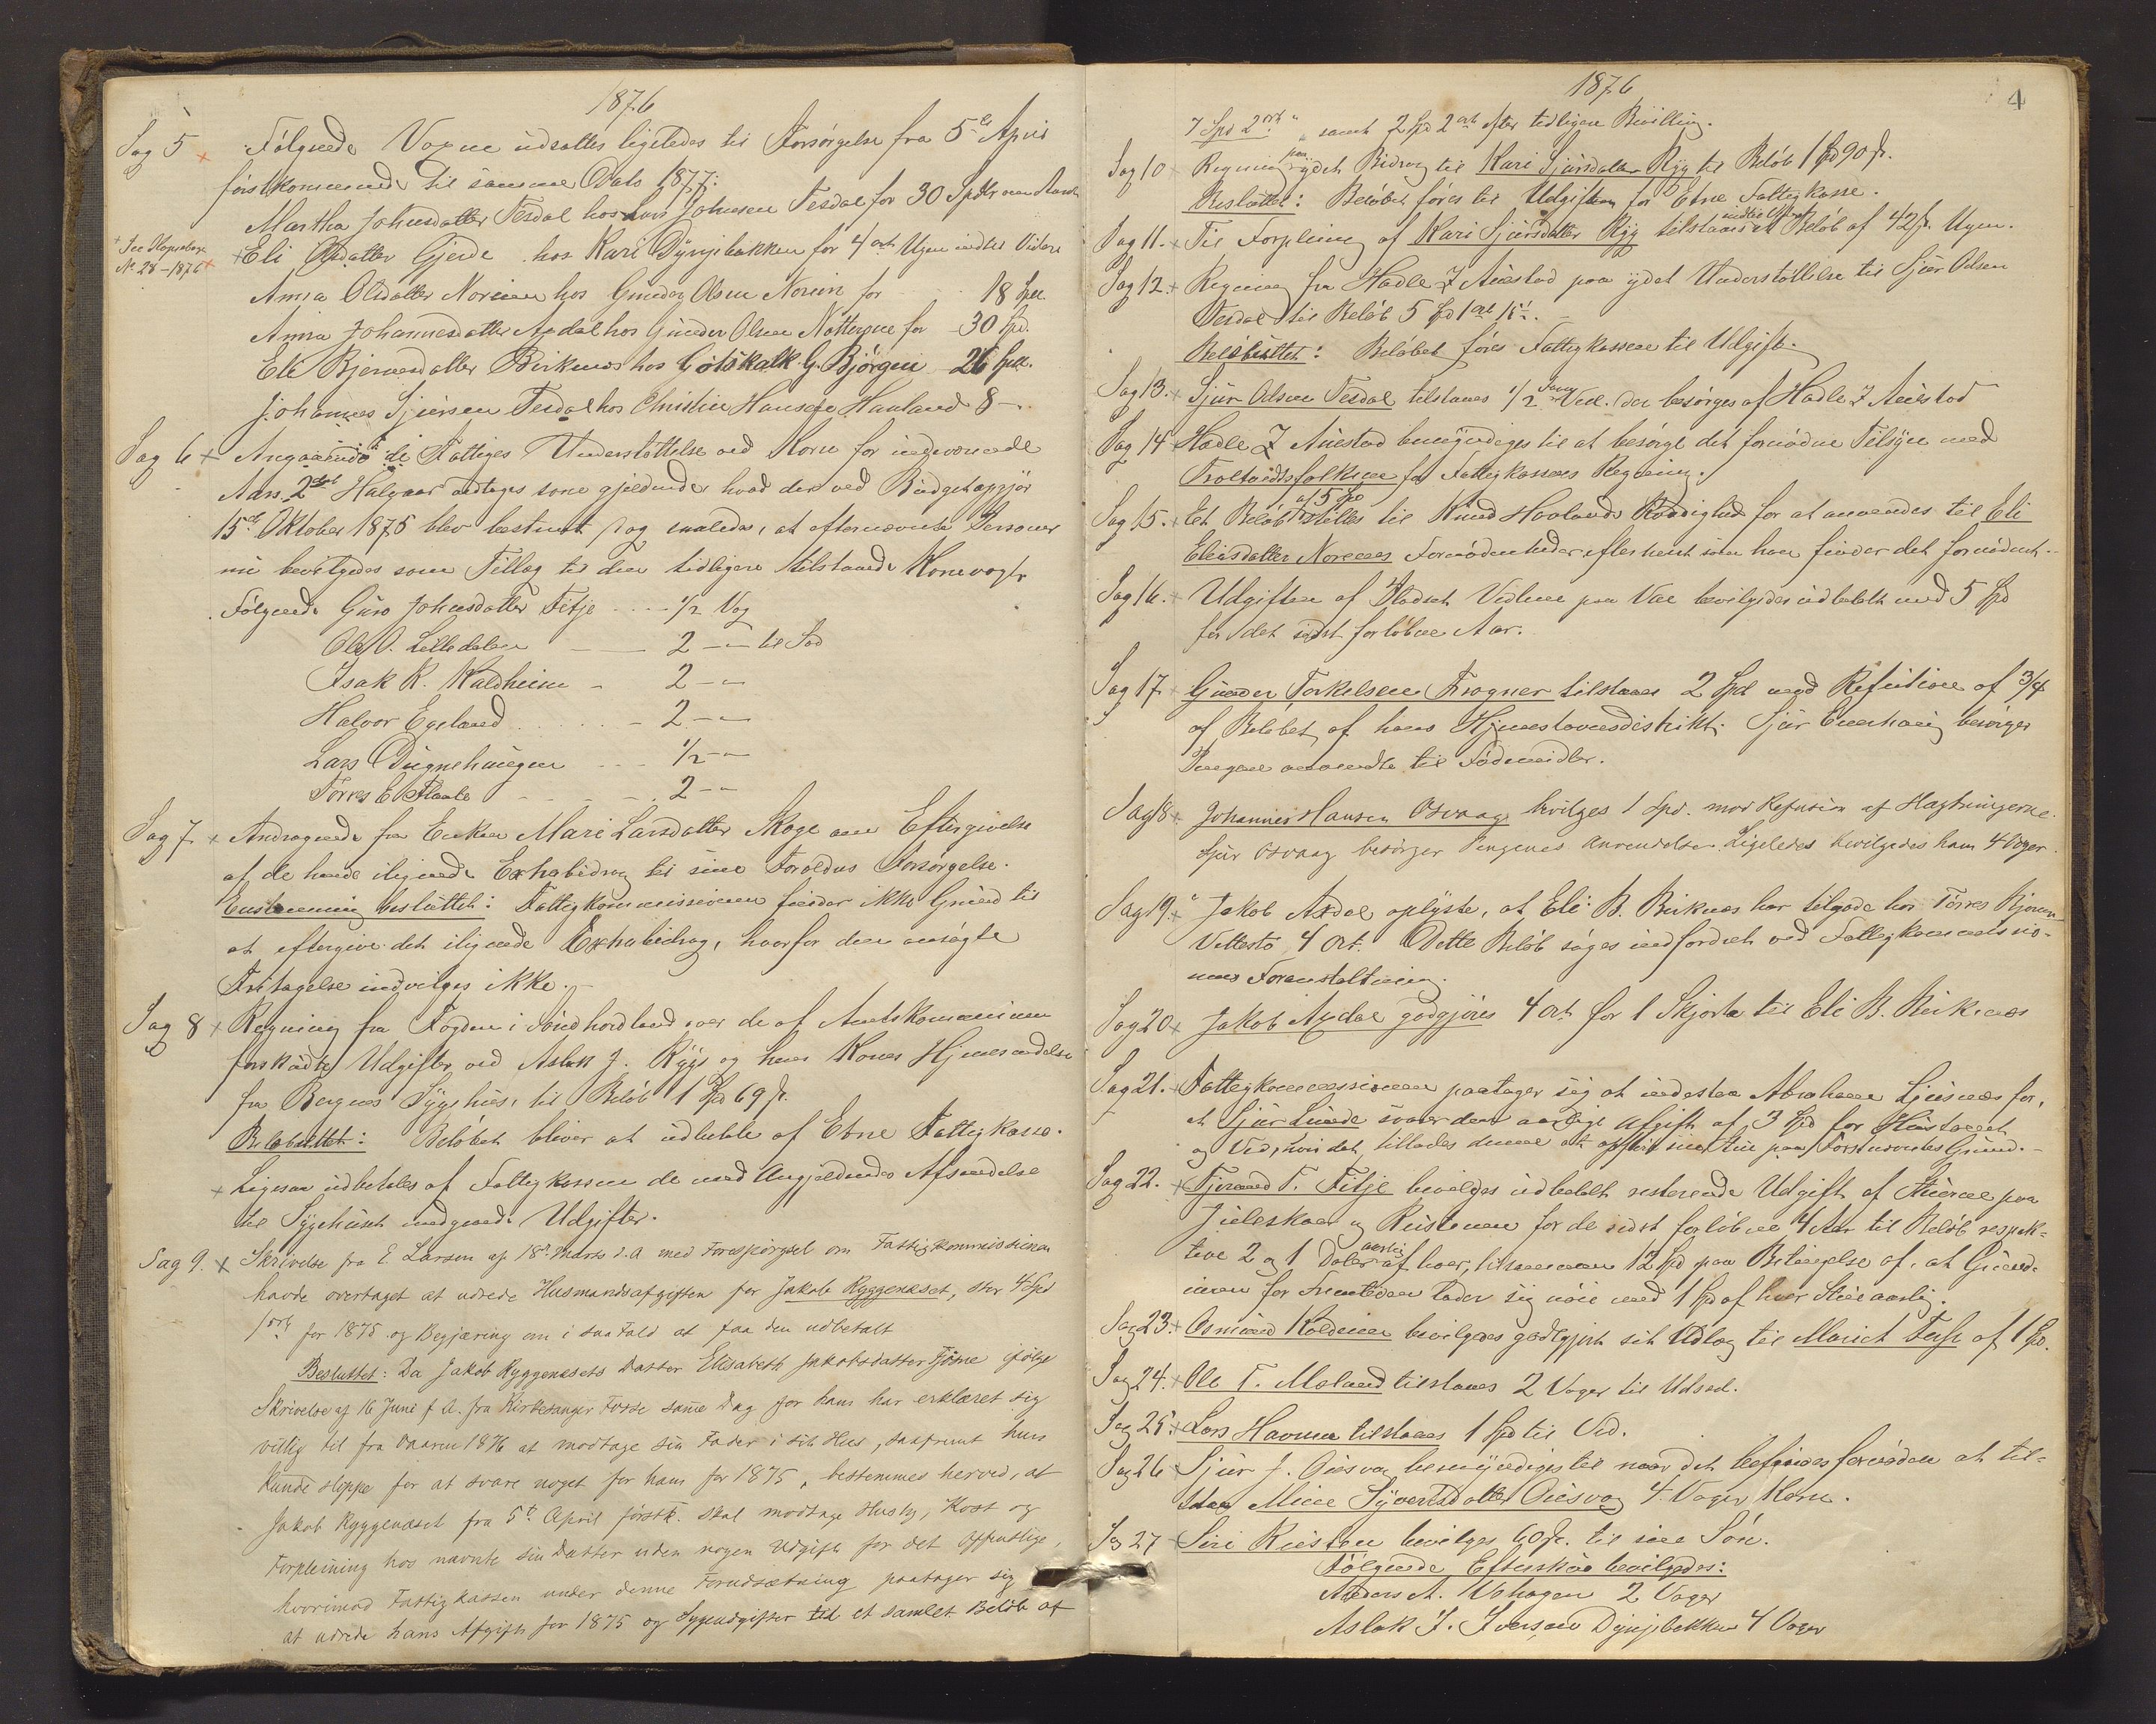 1876
Sag 5 Følgende Voxne udsættes ligeledes til Forsørgelse fra 5te April
førstkommende til samme Dato 1877:
Martha Johnsdatter Tesdal hos Lars Johnsen Tesdal for 30 Spdlr om Aaret
+ Se Kopiebog
No 28-1876 + Eli Olsdatter Gjerde hos Kari Dynjebakken for 4 ort Ugen indtil Videre
Anna Olsdatter Noreim hos Gunder Olsen Noreim for 18 Spdl.
Anna Johannesdatter Axdal hos Gunder Olsen Nøttergne for 30 Spd.
Eli Bjørnsdatter Birknes hos Gotskalk G. Bjørgen 26 Spdl.
Johannes Sjursen Tesdal hos Christen Hansen Hauland 8 –
Sag 6 + Angaaende de Fattiges Understøttelse ved Korn for indeværende
Aars 2det Halvaar vedtages som gjeldende hvad der ved Budgetopgjør
15de Oktober 1875 blev bestemt, dog saaledes, at efternævnte Personer
nu bevilgedes som Tillæg til den tidligere tilstaaede Kornvogt
Følgende Guro Johnsdatter Fitje .... 1/2 Vog
Ole O. Lilledalen — 2 – " til Sæd
Isak K. Kaldheim – 2 – "
Halvor Egeland ..... – 2 – "
Lars Dugnehaugen ... 1/2 – "
Torres E. Flaate – – – . 2 – "
Sag 7 + Andragende fra Enken Mari Larsdatter Skoge om Eftergivelse
af de hende ilignede Extrabidrag til sine Forældres Forsørgelse.
Enstemmig besluttet: Fattigkommissionen finder ikke Grund til
at eftergive det ilignede Extrabidrag, hvorfor den ansøgte
Fritagelse indvilges ikke.
Sag 8 + Regning fra Fogden i Søndhordland over de af Amtskommunen
forskudte Udgifter ved Aslak J. Rygg og hans Kones Hjemsendelse
fra Bergens Sygehus, til Beløb 1 Spd 69 s.
Besluttet: Beløbet bliver at udbetale af Etne Fattigkasse.
+ Ligesaa udbetales af Fattigkassen de med Angjældendes Afsendelse
til Sygehuset medgaaede Udgifter.
Sag 9. + Skrivelse fra E. Larsen af 18de Marts d. A. med Forespørgsel om Fattigkommissionen
havde overtaget at udrede Husmandsafgiften for Jakob Ryggenæset, stor 4 Spd
1 ort for 1875 og Begjæring om i saa Fald at faa den udbetalt
Besluttet: Da Jakob Ryggenæsets Datter Elisabeth Jakobsdatter Fjøsne ifølge
Skrivelse af 16 Juni f. A. fra Kirkesanger Fosse samme Dag for ham har erklæret sig
villig til fra Vaaren 1876 at modtage sin Fader i sit Hus, saafremt hun
kunde slippe for at svare noget for ham for 1875, bestemmes herved, at
Jakob Ryggenæset fra 5te April førstk. skal modtage Husly, Kost og
Forpleining hos nævnte sin Datter uden nogen Udgift for det Offentlige,
hvorimod Fattigkassen under denne Forudsætning paatager sig
at udrede hans Afgift for 1875 og Sygeudgifter til et samlet Beløb af
1876
4
7 Spd 2 ort " s samt 2 Spd 2 ort efter tidligere Bevilling.
Sag 10 Regning paa ydet Bidrag til Kari Sjursdatter Rygg til Beløb 1 Spd 90 s.
Besluttet: Beløbet føres til Udgift for Etne Fattigkasse.
Sag 11. + Til Forpleining af Kari Sjursdatter Rygg tilstaaes indtil Videre et Beløb af 42 s. Ugen.
Sag 12. + Regning fra Hadle J Auestad paa ydet Understøttelse til Sjur Olsen
Tesdal til Beløb 5 Spd 1 ort 15 s.
Besluttet: Beløbet føres Fattigkassen til Udgift.
Sag 13. + Sjur Olsen Tesdal tilstaaes 1/2 Favn Ved. der besørges af Hadle J Auestad
Sag 14 Hadle J Auestad bemyndiges til at besørge det fornødne Tilsyn med
Troltvedtsfolkene for Fattigkassens Regning.
Sag 15. + Et Beløb af 5 Spd stilles til Knud Hovlands Raadighed for at anvendes til Eli
Eliasdatter Norenes Fornødenheder eftersom han finder det fornødent.
Sag 16. + Udgiften af Pladset Vedlene paa Vae bevilgedes udbetalt med 5 Spd
for det sidst forløbne Aar.
Sag 17. + Gunder Torkelsen Frogner tilstaaes 2 Spd mod Refusion af 3/4
af Beløbet af hans Hjemstavnsdistrikt. Sjur Enehaug besørger
Pengene anvendte til Fødemidler.
Sag 18 + Johannes Hansen Osvaag bevilges 1 Spd. mod Refusion af Slægtningerne.
Sjur Osvaag besørger Pengenes Anvendelse. Ligeledes bevilgedes ham 4 Voger.
Sag 19. + Jakob Axdal oplyste, at Eli B. Birknes har tilgode hos Torres Bjørnsen
Vettestø 4 Ort. Dette Beløb søges indfordret ved Fattigkommissio-
nens Foranstaltning.
Sag 20 + Jakob Axdal godgjøres 4 ort for 1 Skjorte til Eli B. Birknes
Sag 21. + Fattigkommissionen paatager sig at indestaa Abraham Liusnes for,
at Sjur Lunde svarer den aarlige Afgift af 3 Spd for Hustomt,
og Vedhundst, tillades denne at opføre sin Stue paa Førstnævntes Grund.
Sag 22. + Tjerand T. Fitje bevilges udbetalt resterende Udgift af Stuerne paa
Juleskaar og Rustenen for de sidst forløbne 4 Aar til Beløb respek-
tive 2 og 1 Daler aarlig af hver, tilsammen 12 Spd paa Betingelse af, at Grund-
eieren for Fremtiden lader sig nøie med 1 Spd af hver Stue aarlig.
Sag 23. + Osmund Koldenen bevilgedes godtgjort sit Udlæg til Marict Tersh af 1 Spd.
Sag 24. + Ole T. Moland tilstaaes 2 Voger til Udsæd.
Sag 25. + Lars Havnen tilstaaes 1 Spd til Ved.
Sag 26 Sjur J. Oiesvog bemyndiges til naar det befindes fornøden at til-
staa Mine Syvertsdatter Oiesvog 4 Voger Korn.
Sag 27 Siri Rusten bevilges 60 s. til sin Søn.
Følgende Efterskud bevilgedes:
Anders A. Vahagen 2 Voger
Aslak J. Iversen Dynjebakken 4 Voger